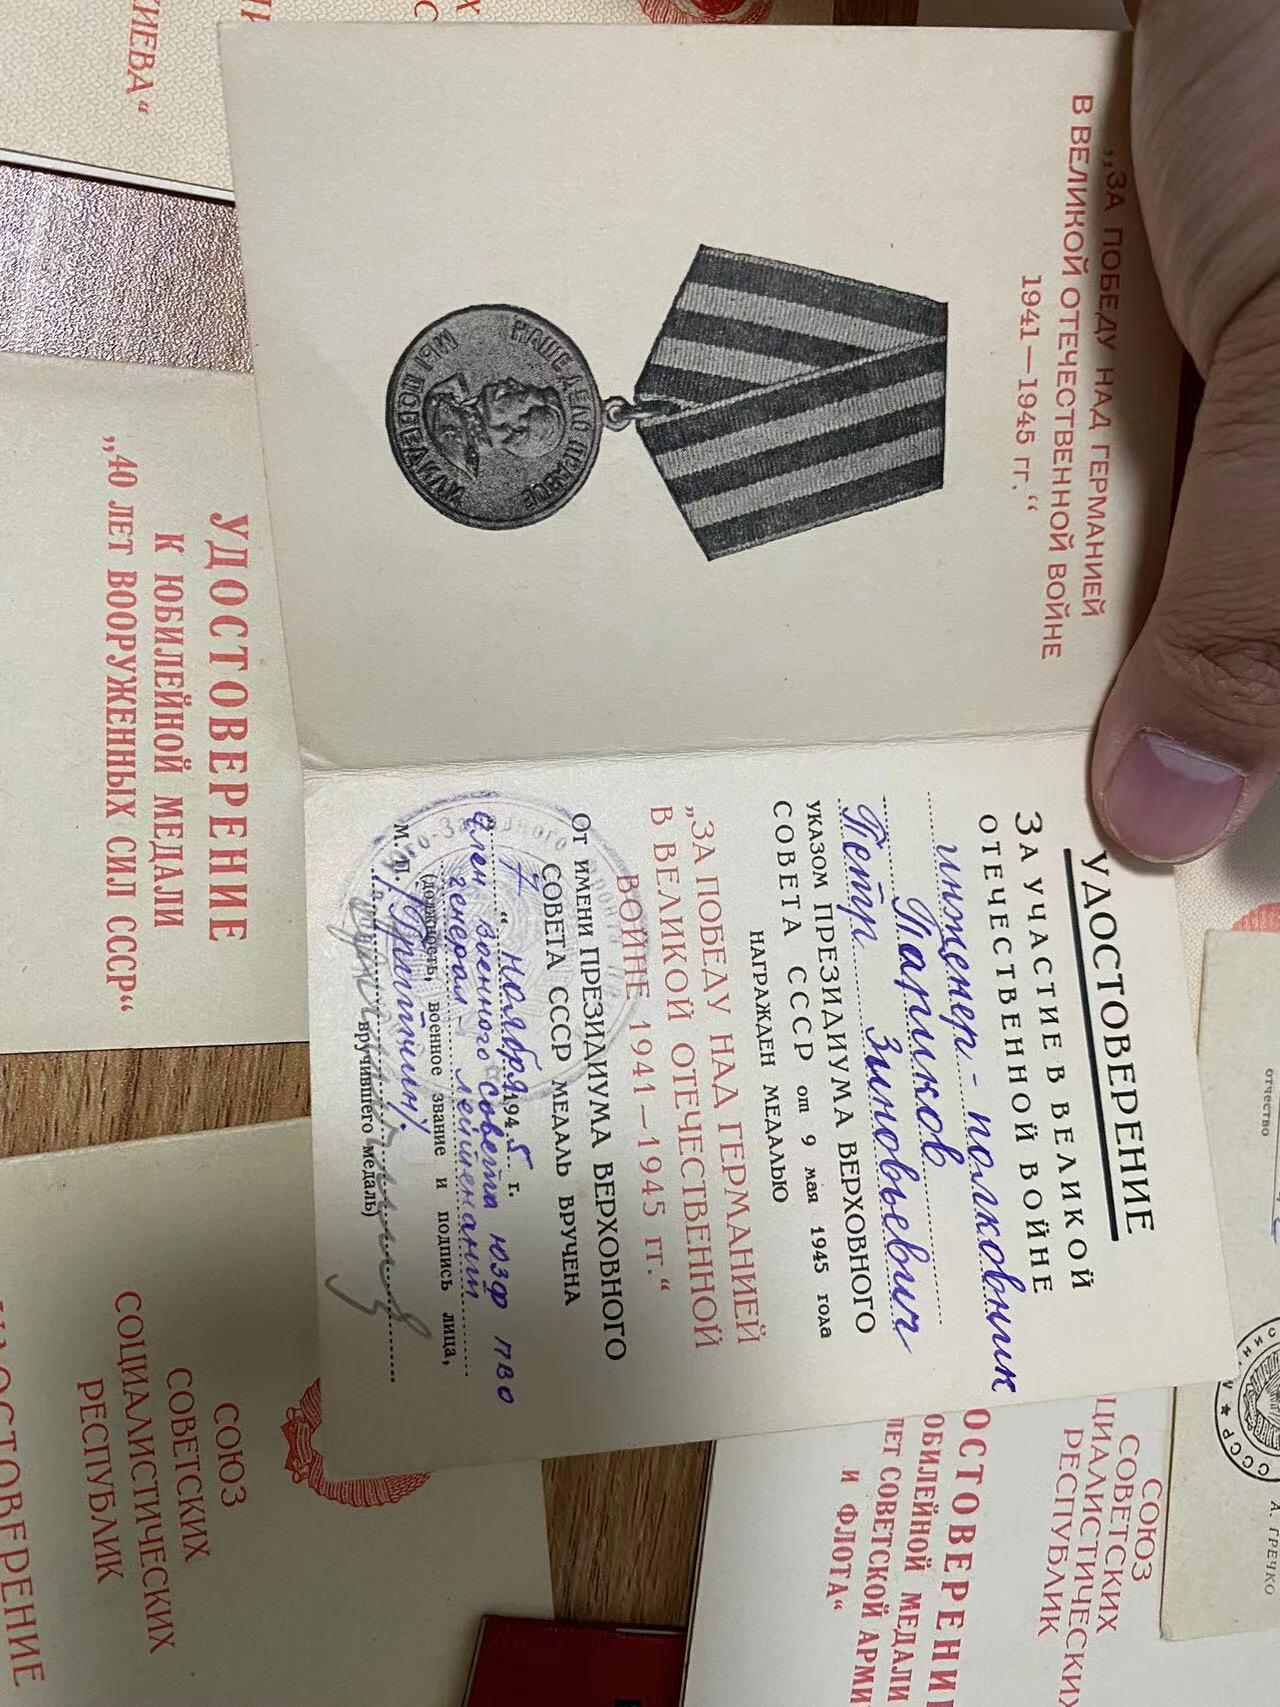 „ЗА ПОБЕДУ НАД ГЕРМАНИЕЙ
В ВЕЛИКОЙ ОТЕЧЕСТВЕННОЙ ВОЙНЕ
1941—1945 гг.“
НАШЕ ДЕЛО ПРАВОЕ
МЫ ПОБЕДИЛИ
УДОСТОВЕРЕНИЕ
ЗА УЧАСТИЕ В ВЕЛИКОЙ
ОТЕЧЕСТВЕННОЙ ВОЙНЕ
инженер-полковник
Париков
Пётр Зиновьевич
УКАЗОМ ПРЕЗИДИУМА ВЕРХОВНОГО
СОВЕТА СССР от 9 мая 1945 года
НАГРАЖДЕН МЕДАЛЬЮ
„ЗА ПОБЕДУ НАД ГЕРМАНИЕЙ
В ВЕЛИКОЙ ОТЕЧЕСТВЕННОЙ
ВОЙНЕ 1941—1945 гг.“
От имени ПРЕЗИДИУМА ВЕРХОВНОГО
СОВЕТА СССР МЕДАЛЬ ВРУЧЕНА
„7“ ноября 1945 г.
Член военного совета ЮЗФ ПВО
генерал-лейтенант
(должность, военное звание и подпись лица,
М. П.
вручившего медаль)
КИЕВА“
УДОСТОВЕРЕНИЕ
К ЮБИЛЕЙНОЙ МЕДАЛИ
„40 ЛЕТ ВООРУЖЕННЫХ СИЛ СССР“
СОЮЗ
СОВЕТСКИХ
СОЦИАЛИСТИЧЕСКИХ
РЕСПУБЛИК
ДОСТОВЕРЕНИЕ
СОЮЗ
СОВЕТСКИХ
ЦИАЛИСТИЧЕСКИХ
РЕСПУБЛИК
ОСТОВЕРЕНИ
ОБИЛЕЙНОЙ МЕДАЛИ
ЛЕТ СОВЕТСКОЙ АРМИ
И ФЛОТА“
отчество
СССР
А. ГРЕЧКО